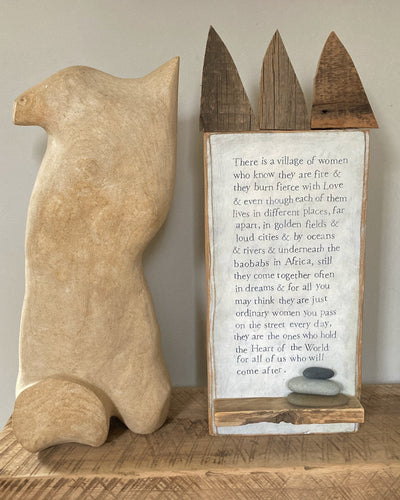 There is a village of women
who know they are fire &
they burn fierce with Love
& even though each of them
lives in different places, far
apart, in golden fields &
loud cities & by oceans
& rivers & underneath the
baobabs in Africa, still
they come together often
in dreams & for all you
may think they are just
ordinary women you pass
on the street every day,
they are the ones who hold
the Heart of the World
for all of us who will
come after.